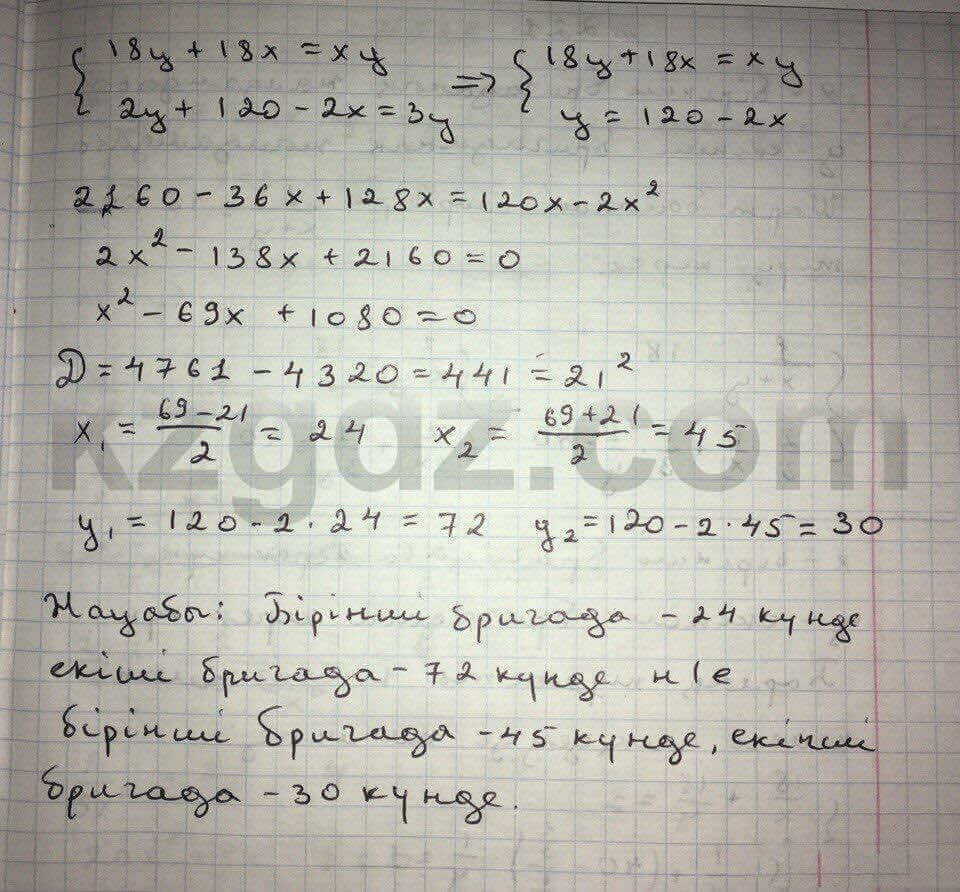 { 18y + 18x = xy => { 18y + 18x = xy
2y + 120 - 2x = 3y y = 120 - 2x
2160 - 36x + 128x = 120x - 2x²
2x² - 138x + 2160 = 0
x² - 69x + 1080 = 0
D = 4761 - 4320 = 441 = 21²
x₁ = (69 - 21)/2 = 24 x₂ = (69 + 21)/2 = 45
kzgdz.com
y₁ = 120 - 2 · 24 = 72 y₂ = 120 - 2 · 45 = 30
Жауабы: Бірінші бригада - 24 күнде
екіші бригада - 72 күнде н/е
бірінші бригада - 45 күнде, екінші
бригада - 30 күнде.